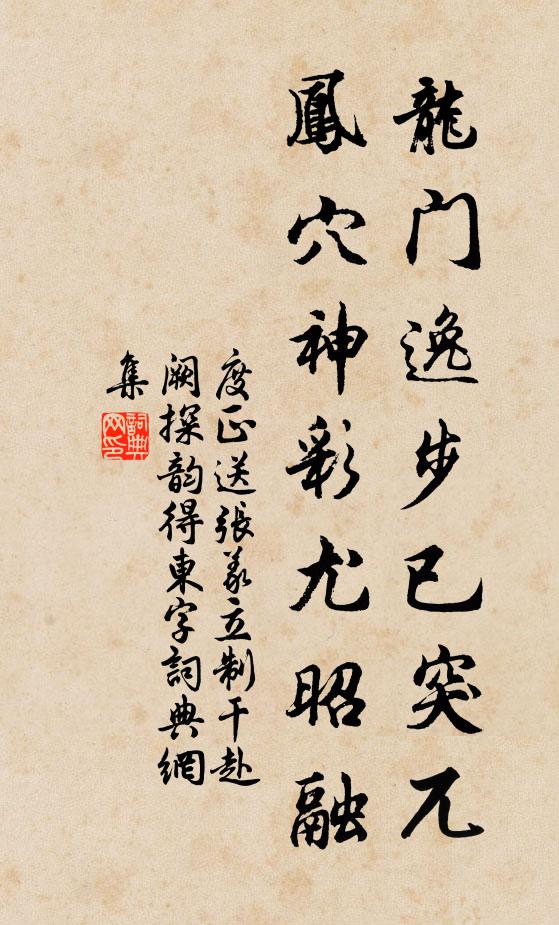 龍门逸步已突兀
鳳穴神彩尤昭融
度正送張義立制干赴
阙探韵得東字詞典網
集
詞典网印